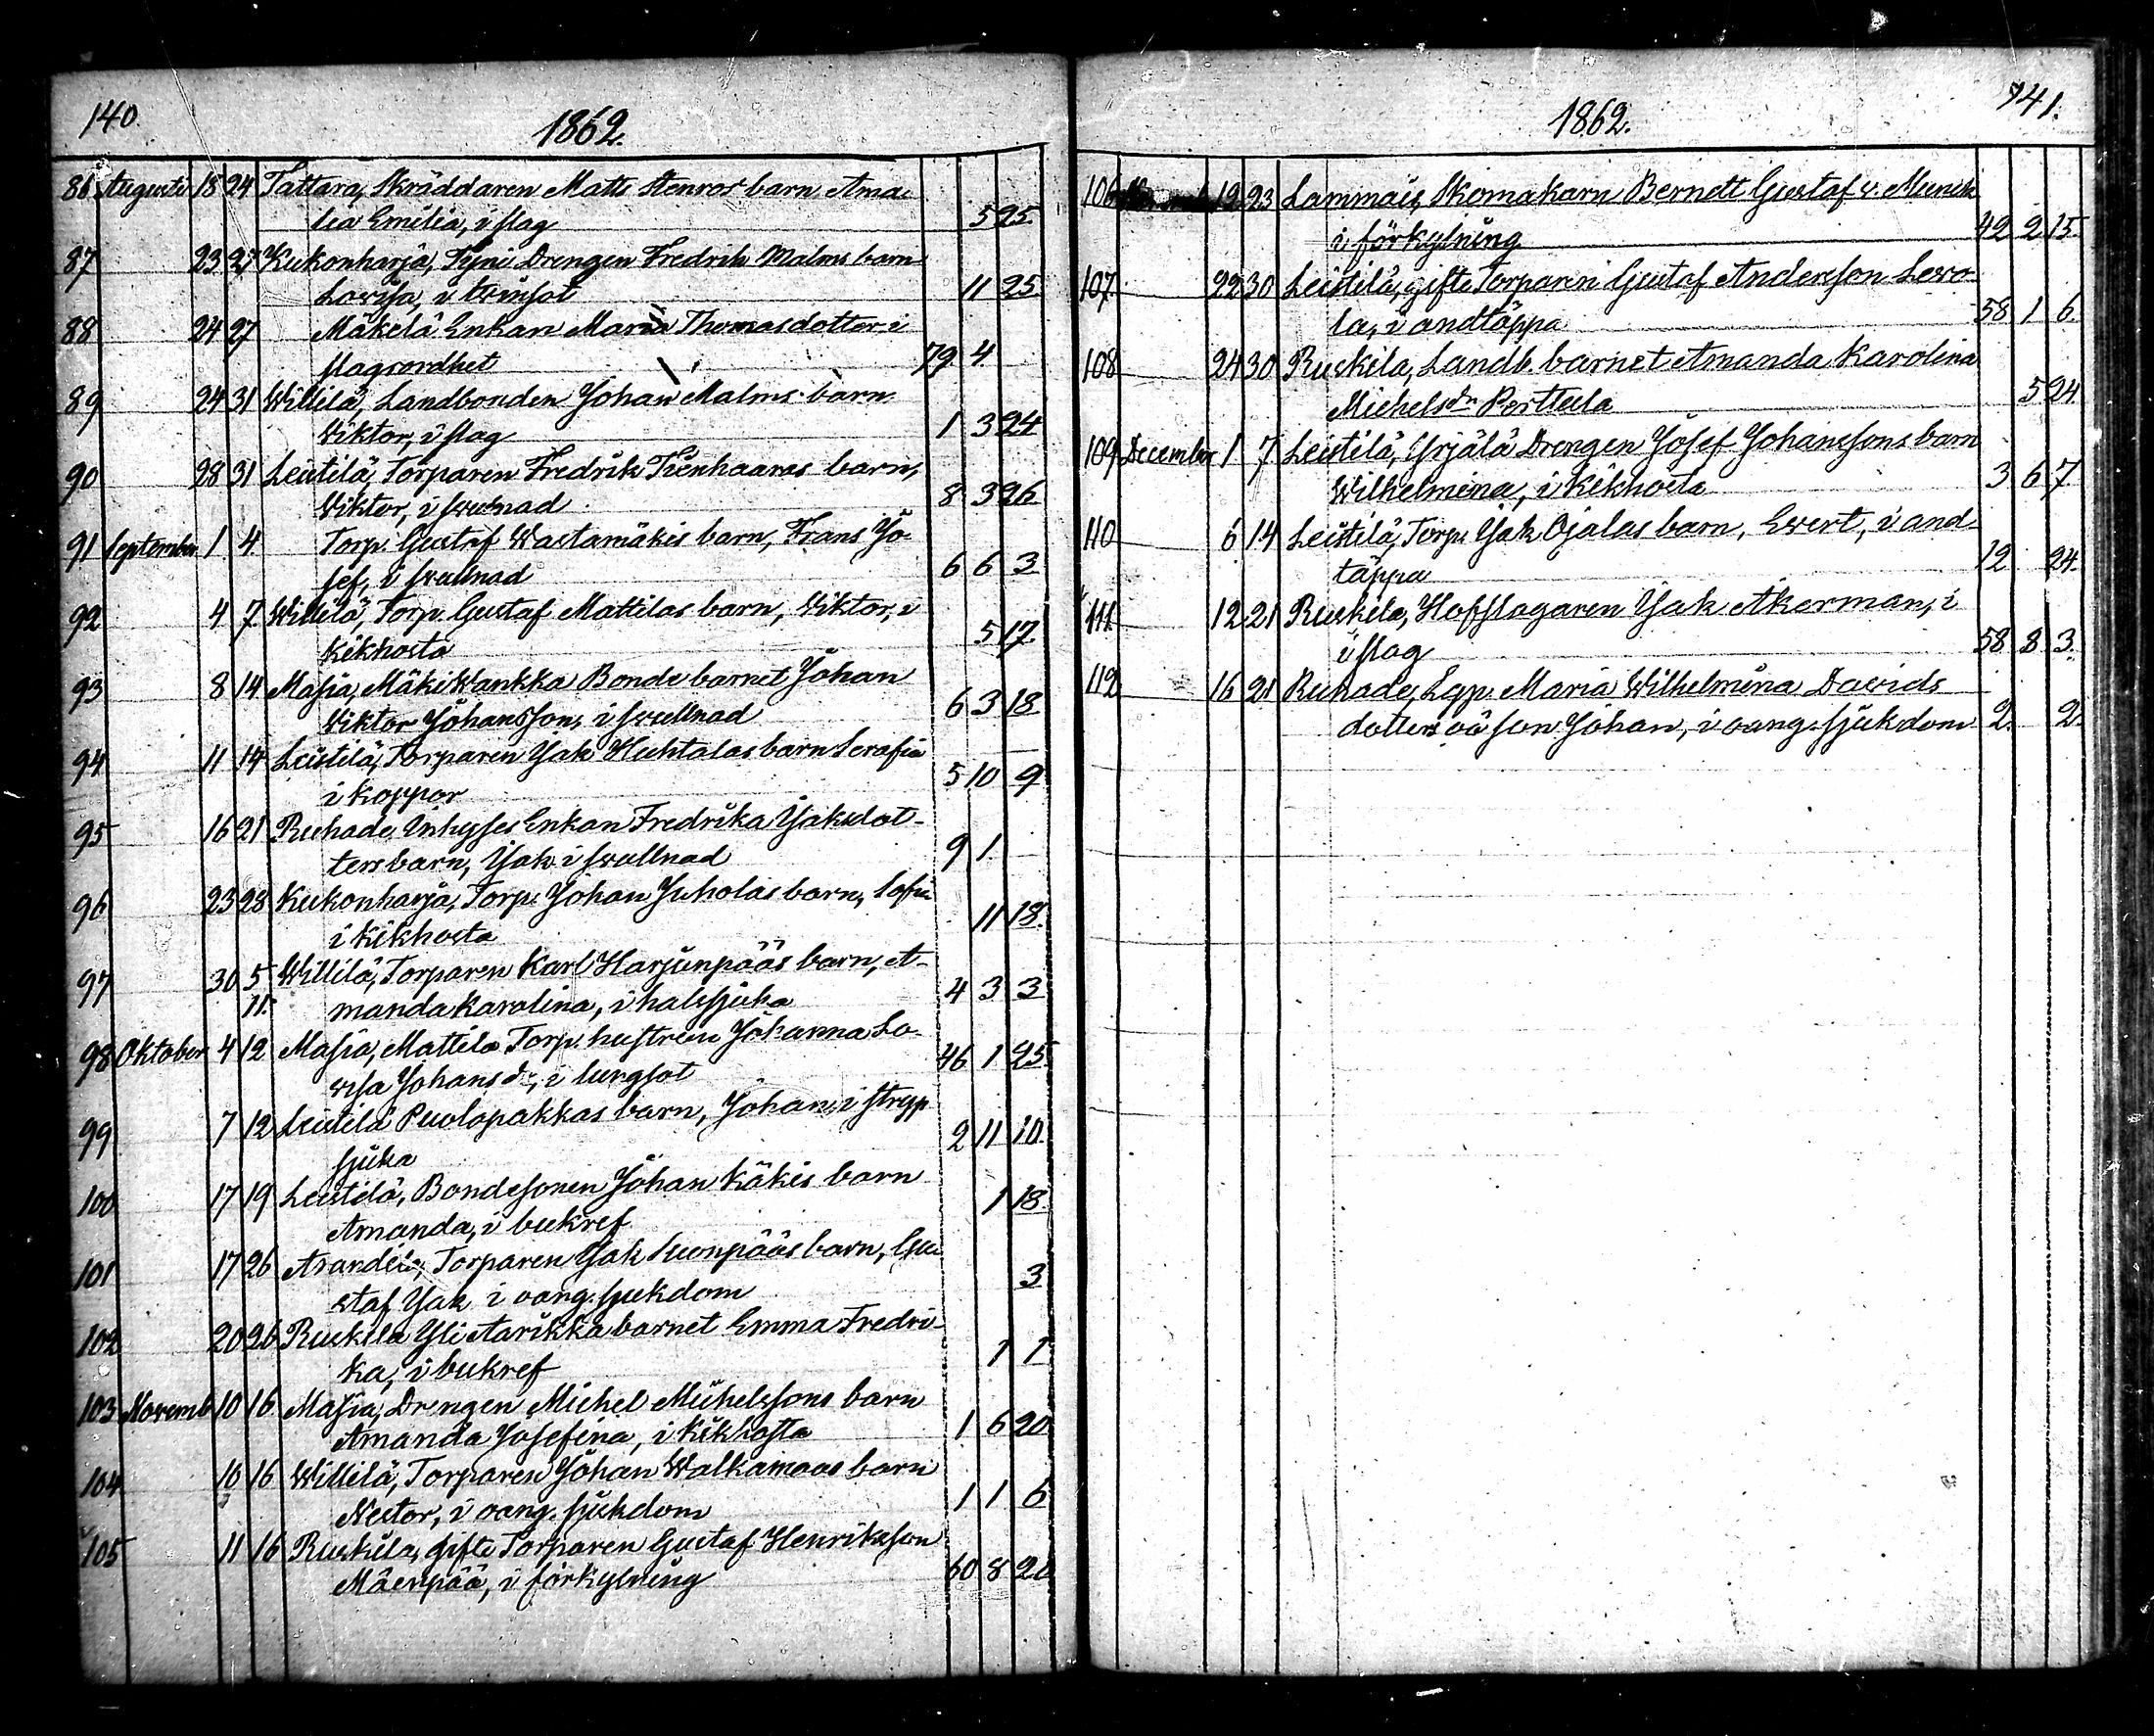 140.
1862.
86 Augusti 18 24 Tattara, Skräddaren Matts Stenros barn Ama-
lia Emilia, i slag 5 25.
87 23 27 Kukonharja, Tyni Drengen Fredrik Malms barn
Lovisa, i tvinsot 11 25.
88 24 27 Mäkelä Enkan Maria Thomasdotter i
79. 4.
89 24 31 Willilä, Landbonden Johan Malms barn
Wiktor, i slag 1 3 24
90 28 31 Leistilä, Torparen Fredrik Tienhaaras barn,
Viktor, i svulnad 8 3 26
91 September 1 4. Torp. Gustaf Wastamäkis barn, Frans Jo-
sef, i svullnad 6 6 3.
92 4 7. Willilä, Torp. Gustaf Mattilas barn, Viktor, i
kikhosta 5 17.
93 8 14 Masia, Mäkiwankka Bonde barnet Johan
Viktor Johansson, i svullnad 6 3 18
94 11 14 Leistilä, Torparen Jak Huhtalas barn Serafia
i koppor 5 10 9
95 16 21 Ruhade Inhyses Enkan Fredrika Jaksdot-
ters barn, Jak i svullnad 9 1.
96 23 28 Kukonharja, Torp. Johan Juholas barn, Sofia
i kikhosta 11 18.
97 30 5 Willilä, Torparen Karl Harjunpääs barn, A-
11. manda Karolina, i halssjuka 4 3 3
98 Oktober 4 12 Masia, Mattila Torp. hustrun Johanna Lo-
visa Johansdr, i lungsot 46 1 25.
99 7 12 Leistilä Puolapakkas barn, Johan, i stryp
sjuka 2 11 10.
100 17 19 Leistilä, Bondesonen Johan Käkis barn
Amanda, i bukref 1 18.
101 17 26 Torparen Jak barn, Gu
staf Jak i oang. sjukdom 3.
102 20 26 Ruskila Yli Aarikka barnet Emma Fredri-
ka, i bukref 1 1
103 Novemb 10 16 Masia, Drengen Michel Michelssons barn
Amanda Josefina, i kikhosta 1 6 20
104 10 16 Willilä, Torparen Johan Walkamaas barn
Nestor, i oang. sjukdom 1 1 6
105 11 16 Ruskila, gifte Torparen Gustaf Henriksson
Mäenpää, i förkylning 60 8 20
141.
1862.
106 19 23 Lammais, Skomakarn Bernett Gustaf v. Munck
i förkylning 42 2 15.
107. 22 30 Leistilä, gifte Torparen Gustaf Andersson Levo-
la, i andtäppa 58 1 6.
108 24 30 Ruskila, Landb. barnet Amanda Karolina
Michelsdr Perttula 5 24
109 December 1. 7 Leistilä, Yrjälä Drengen Josef Johanssons barn
Wilhelmina, i kikhosta 3 6 7.
110 6 14 Leistilä, Torp. Jak Ojalas barn, Evert, i and-
täppa 12 24.
111 12 21 Ruskila, Hofslagaren Jak Åkerman, i
i slag 58 8 3.
112 16 21 Ruhade, Maria Wilhelmina Davids
dotters oä son Johan, i oang. sjukdom 2. 2.